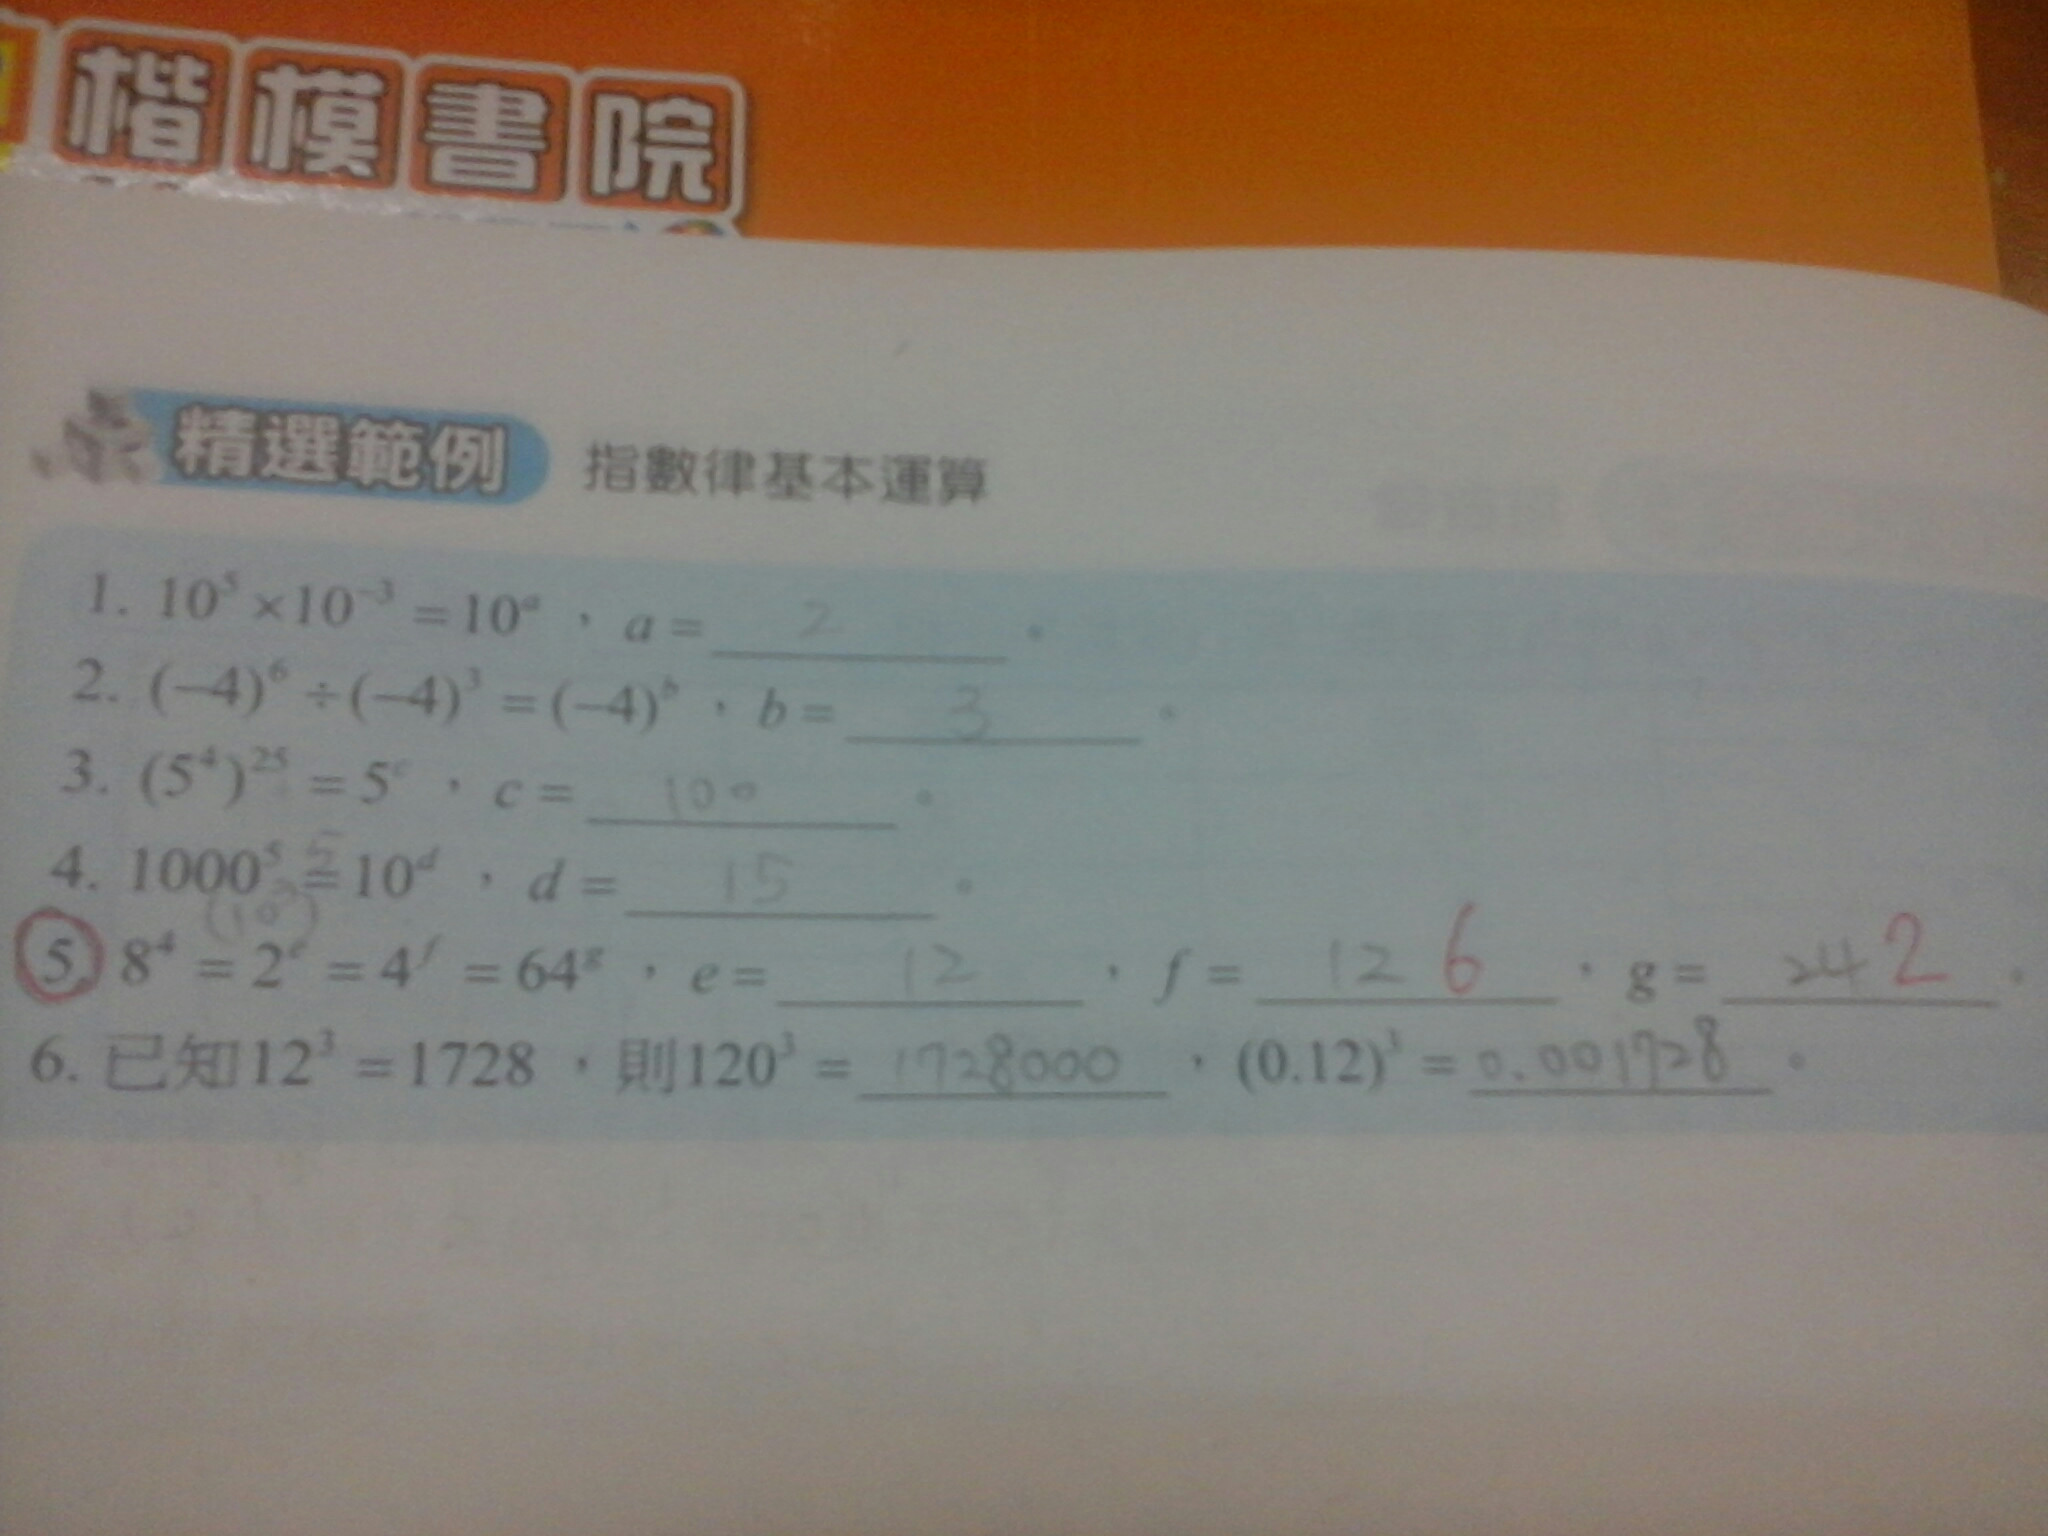 楷模書院
精選範例 指數律基本運算
1. 10⁵×10⁻³=10ᵃ，a= 2 。
2. (−4)⁶÷(−4)³=(−4)ᵇ，b= 3 。
3. (5⁴)²⁵=5ᶜ，c= 100 。
4. 1000⁵=10ᵈ，d= 15 。
(10³)⁵
5. 8⁴=2ᵉ=4ᶠ=64ᵍ，e= 12 ，f= 12 6 ，g= 24 2 。
6. 已知12³=1728，則120³= 1728000 ，(0.12)³= 0.001728 。